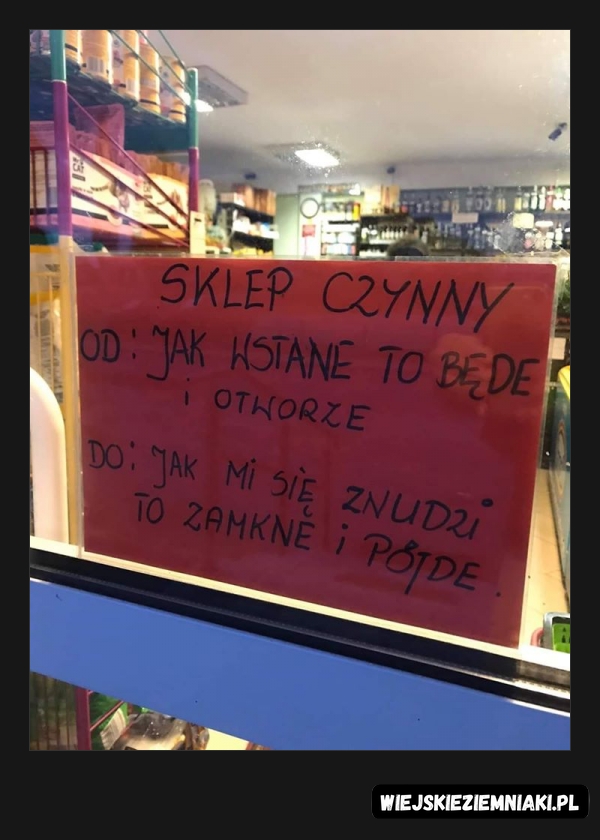 MR CAT
SKLEP CZYNNY
OD: JAK WSTANE TO BĘDE
i OTWORZE
DO: JAK Mi SIĘ ZNUDZi
TO ZAMKNE i PÓJDE.
WIEJSKIEZIEMNIAKI.PL